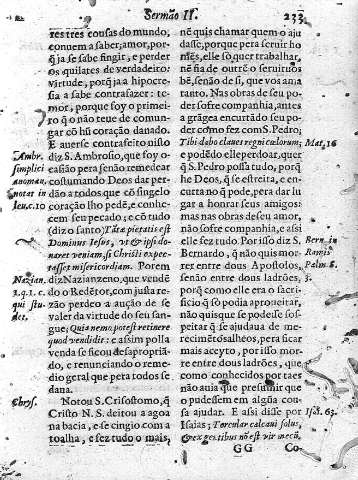 Sermão II. 233
tres tres cousas do mundo,
conuem a saber; amor, por-
q̃ ja se sabe fingir, e perder
os quilates de verdadeiro:
virtude, porq̃ ja a hipocre-
sia a sabe contrafazer: te-
mor, porque soy o primei-
ro q̃ o não teue de comun-
gar cõ hũ coração danado.
E auerse contrafeito nisto
diz S. Ambrosio, que soy o-
casião pera senão remedear
costumando Deos dar per-
dão a todos que cõ singelo
coração lho pedẽ, e conhe-
cem seu pecado; e cõ tudo
(diz o santo) Tãta pietatis est
Dominus Iesus, vt & ipsi do-
naret veniam, si Christi expe-
ctasset misericordiam. Porem
diz Nazianzeno, que vendẽ
do o Redẽtor, com justa re-
zão perdeo a aução de se
valer da virtude do seu san-
gue; Quia nemo potest retinere
quod vendidit: e assim polla
venda se ficou desapropria-
do, e renunciando o reme-
dio geral que pera todos se
daua.
Notou S. Crisostomo, q̃
Cristo N. S. deitou a agoa
na bacia, e se cingio com a
toalha, e sez tudo o mais,
Ambr.
simplici
anoman.
notat in
Leu. c. 10
Nazian.
2. q. 1. c.
qui stu-
det.
Chrys.
nẽ quis chamar quem o aju
dasse, porque pera seruir ho
mẽs, elle só quer trabalhar,
nẽ fia de outrẽ o seruiruos
bẽ, senão de si, que vos ama
tanto. Nas obras de seu po-
der sofre companhia, antes
a grãgea encurtãdo o seu po-
der como sez com S. Pedro,
Tibi dabo claues regni cœlorum;
e podẽdo elle perdoar, quer
q̃ S. Pedro possa tudo, porq̃
he Deos, q̃ se estreita, e en-
curta no q̃ pode, pera dar lu
gar a honrar seus amigos:
mas nas obras de seu amor,
não sofre companhia, e assi
elle sez tudo. Por isso diz S.
Bernardo, q̃ não quis mor-
rer entre dous Apostolos,
senão entre dous ladrões,
porq̃ como elle era o sacri-
ficio q̃ só podia aproueitar,
não quis que se podesse sos-
peitar q̃ se ajudaua de me-
recimẽtos alheos, pera ficar
mais aceyto, por isso mor-
re entre dous ladrões, que
como conhecidos por taes
não auia que presumir que
o pudessem em algũa cou-
sa ajudar. E assi disse por
Isaias; Torcular calcaui solus,
& ex gentibus nõ est vir mecũ,
Mat. 16
Bern. in
Ramis
Palm. s.
3.
Isa. 63.
GG Co